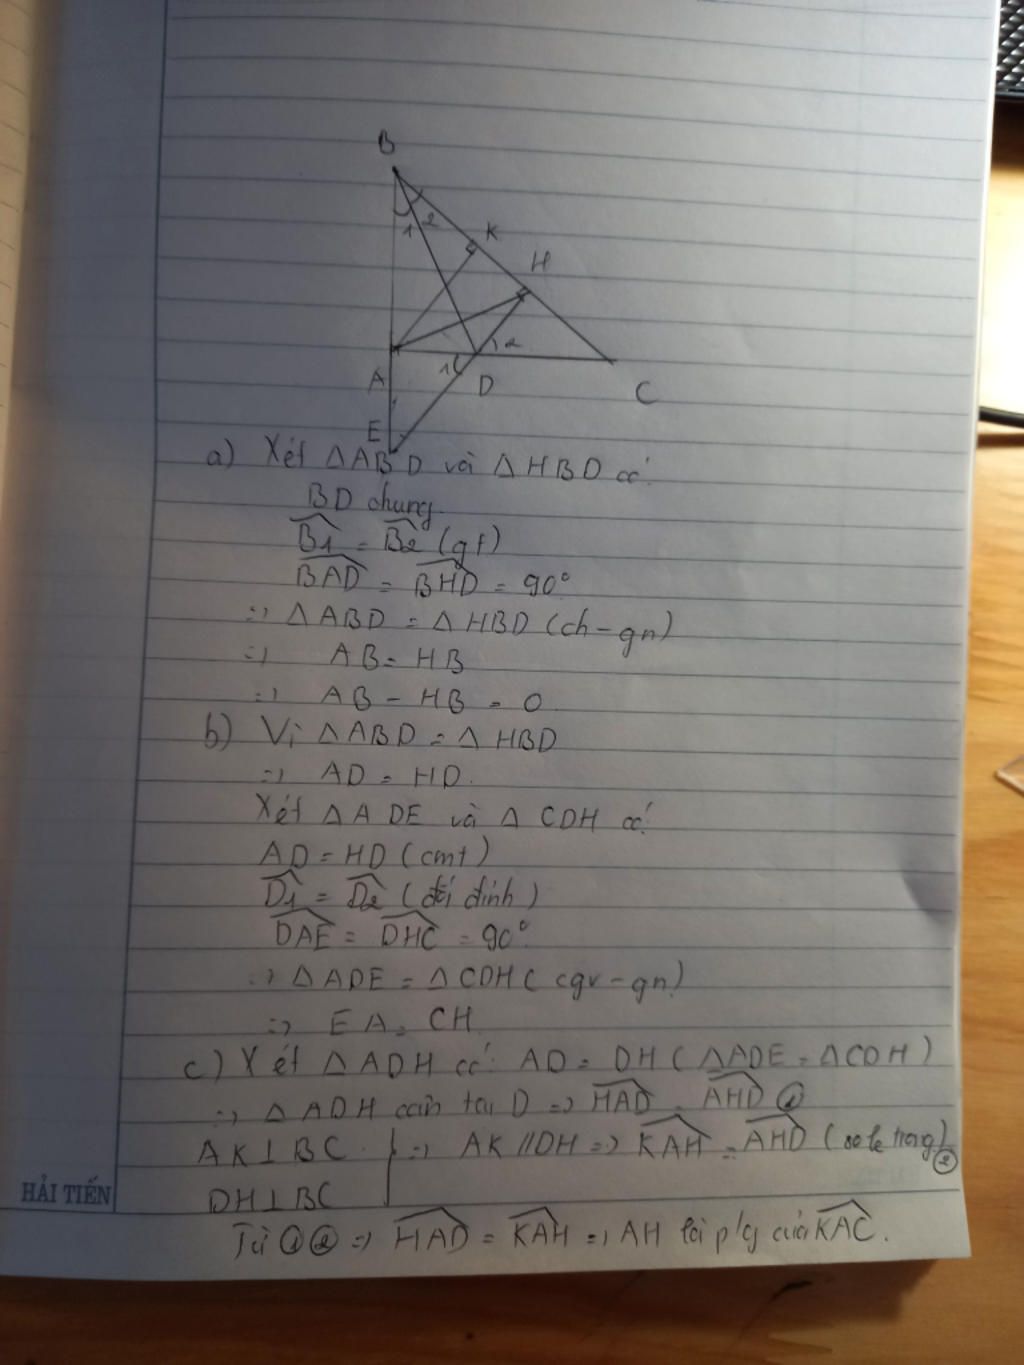 B
1 2
K
H
A
1
D
2
C
E
a) Xét △ABD và △HBD có:
BD chung.
B1 = B2 (gt)
BAD = BHD = 90°
=> △ABD = △HBD (ch-gn)
=> AB = HB
=> AB - HB = 0
b) Vì △ABD = △HBD
=> AD = HD.
Xét △ADE và △CDH có:
AD = HD (cmt)
D1 = D2 (đối đỉnh)
DAE = DHC = 90°
=> △ADE = △CDH (cgv-gn)
=> EA = CH
c) Xét △ADH có: AD = DH (△ADE = △CDH)
=> △ADH cân tại D => HAD = AHD ①
AK ⊥ BC => AK // DH => KAH = AHD (so le trong) ②
DH ⊥ BC
HẢI TIẾN
Từ ① ② => HAD = KAH => AH là p/g của KAC.